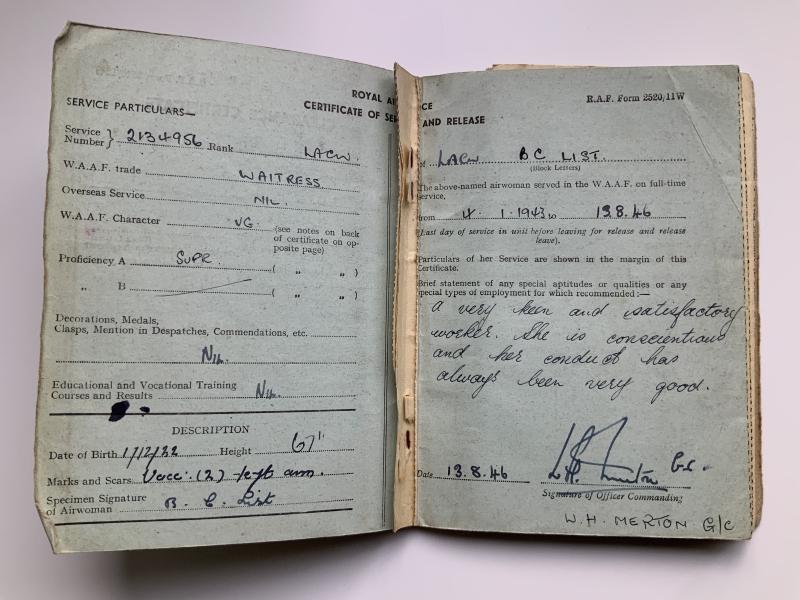 ROYAL AI
CERTIFICATE OF SE
SERVICE PARTICULARS—
Service Number } 2134956 Rank LACW.
W.A.A.F. trade WAITRESS.
Overseas Service NIL.
W.A.A.F. Character VG (see notes on back
of certificate on op-
posite page)
Proficiency A SUPR. ( „ „ )
„ B ( „ „ )
Decorations, Medals,
Clasps, Mention in Despatches, Commendations, etc.
NIL.
Educational and Vocational Training
Courses and Results NIL.
DESCRIPTION
Date of Birth 1/12/22 Height 67"
Marks and Scars Vacc: (2) left arm.
Specimen Signature
of Airwoman B. C. List
CE R.A.F. Form 2520/11W
AND RELEASE
of LACW BC LIST.
(Block Letters)
The above-named airwoman served in the W.A.A.F. on full-time
service,
from 4.1.1943 to 13.8.46
(Last day of service in unit before leaving for release and release
leave).
Particulars of her Service are shown in the margin of this
Certificate.
Brief statement of any special aptitudes or qualities or any
special types of employment for which recommended :—
a very keen and satisfactory
worker. She is conscientious
and her conduct has
always been very good.
Date 13.8.46 W.H. Merton G.C.
Signature of Officer Commanding
W.H. MERTON G/C